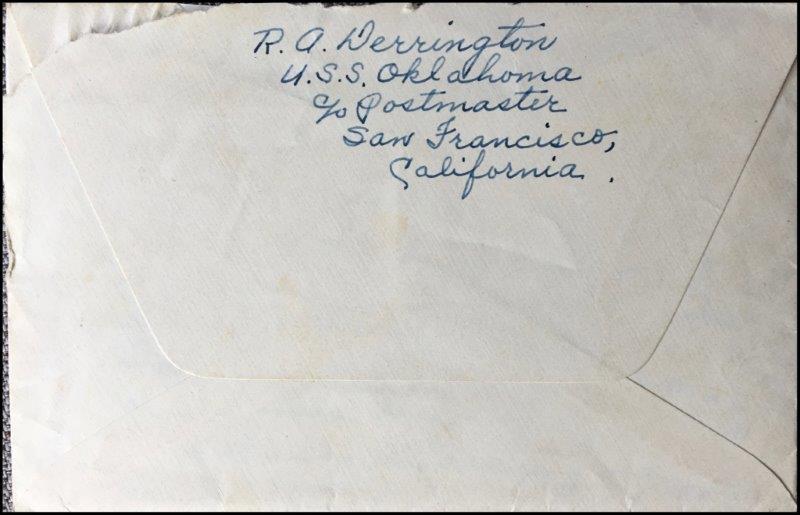 R. A. Derrington
U.S.S. Oklahoma
c/o Postmaster
San Francisco,
California .